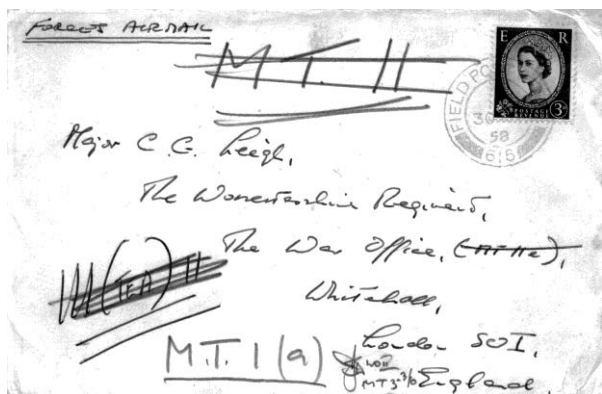 FORCES AIRMAIL
M T. 11
E R
POSTAGE
REVENUE
3D
FIELD PO
30
58
Major C. C. Leigh,
The Worcestershire Regiment,
The War Office,
Whitehall,
London SW1,
England
M (TEA) 11
M.T. 1 (a)
MT3